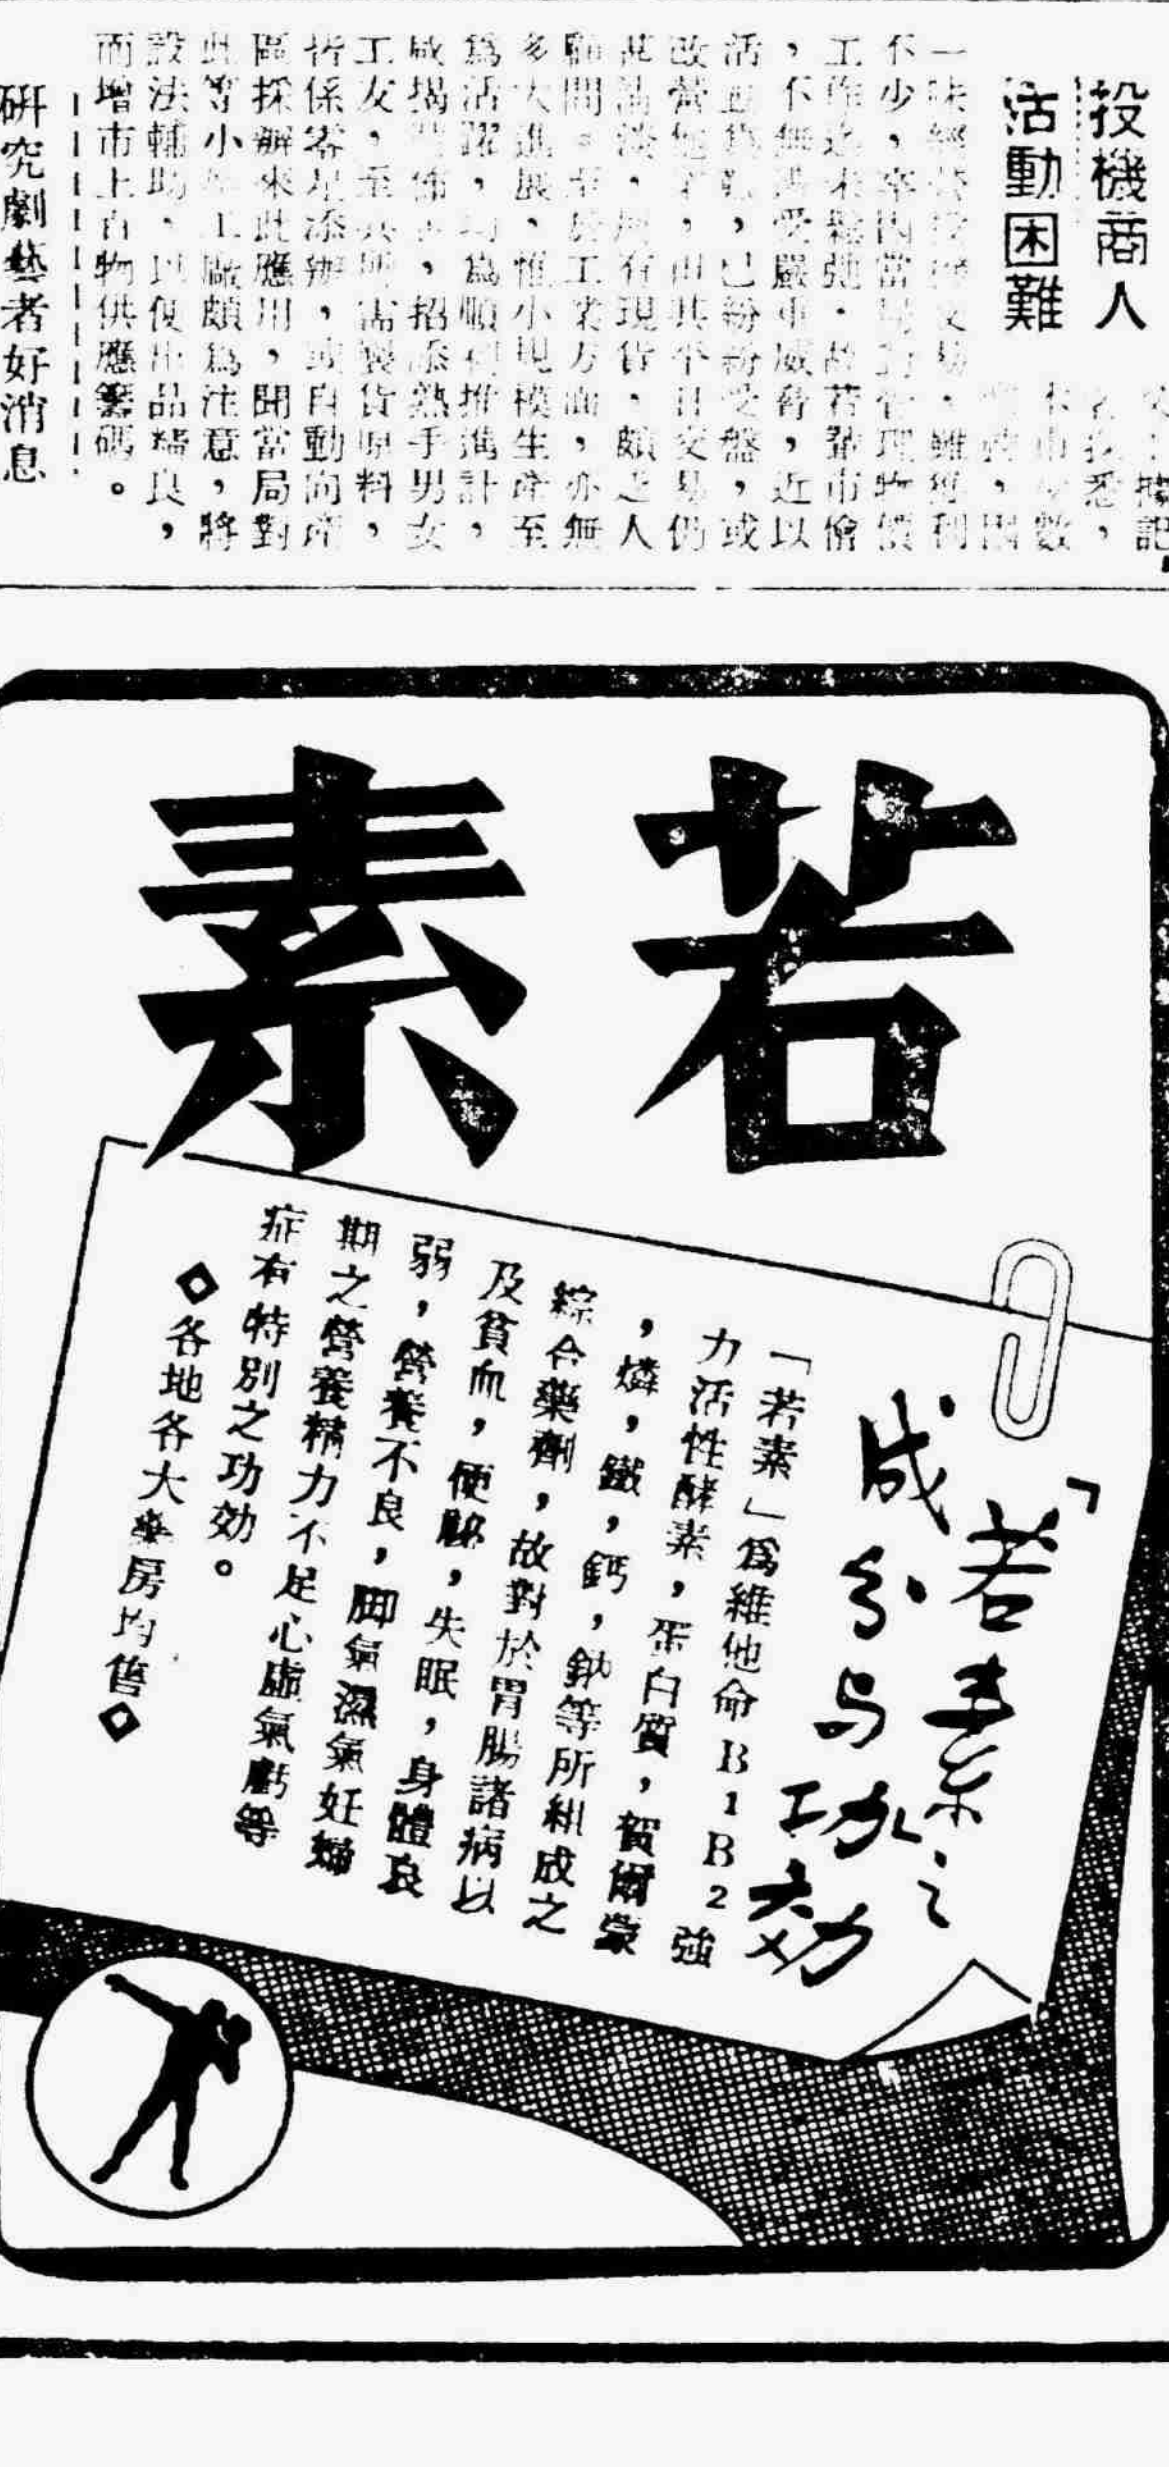 投機商人
活動困難
記
悉，
數
，因
一味經營投機交易，雖獲利
不少，卒因當局對管理物價
工作迄未鬆弛，故若輩市儈
，不無遭受嚴重威脅，近以
活動為難，已紛紛受盤，或
改營他業，但其平日交易仍
甚清淡，縱有現貨，頗乏人
顧問。至於工業方面，亦無
多大進展，惟小規模生產至
為活躍，均為順利推進計，
咸揭門佈告，招添熟手男女
工友，至其所需製貨原料，
皆係零星添辦，或自動向產
區採辦來此應用，聞當局對
此等小型工廠頗為注意，將
設法輔助，以便出品精良，
而增市上百物供應籌碼。
研究劇藝者好消息
若素
「若素之
成分与功效
「若素」為維他命B1B2強
力活性酵素，蛋白質，賀爾蒙
，燐，鐵，鈣，鈉等所組成之
綜合藥劑，故對於胃腸諸病以
及貧血，便秘，失眠，身體衰
弱，營養不良，脚氣濕氣妊婦
期之營養精力不足心虛氣虧等
症有特別之功効。
◇各地各大藥房均售◇